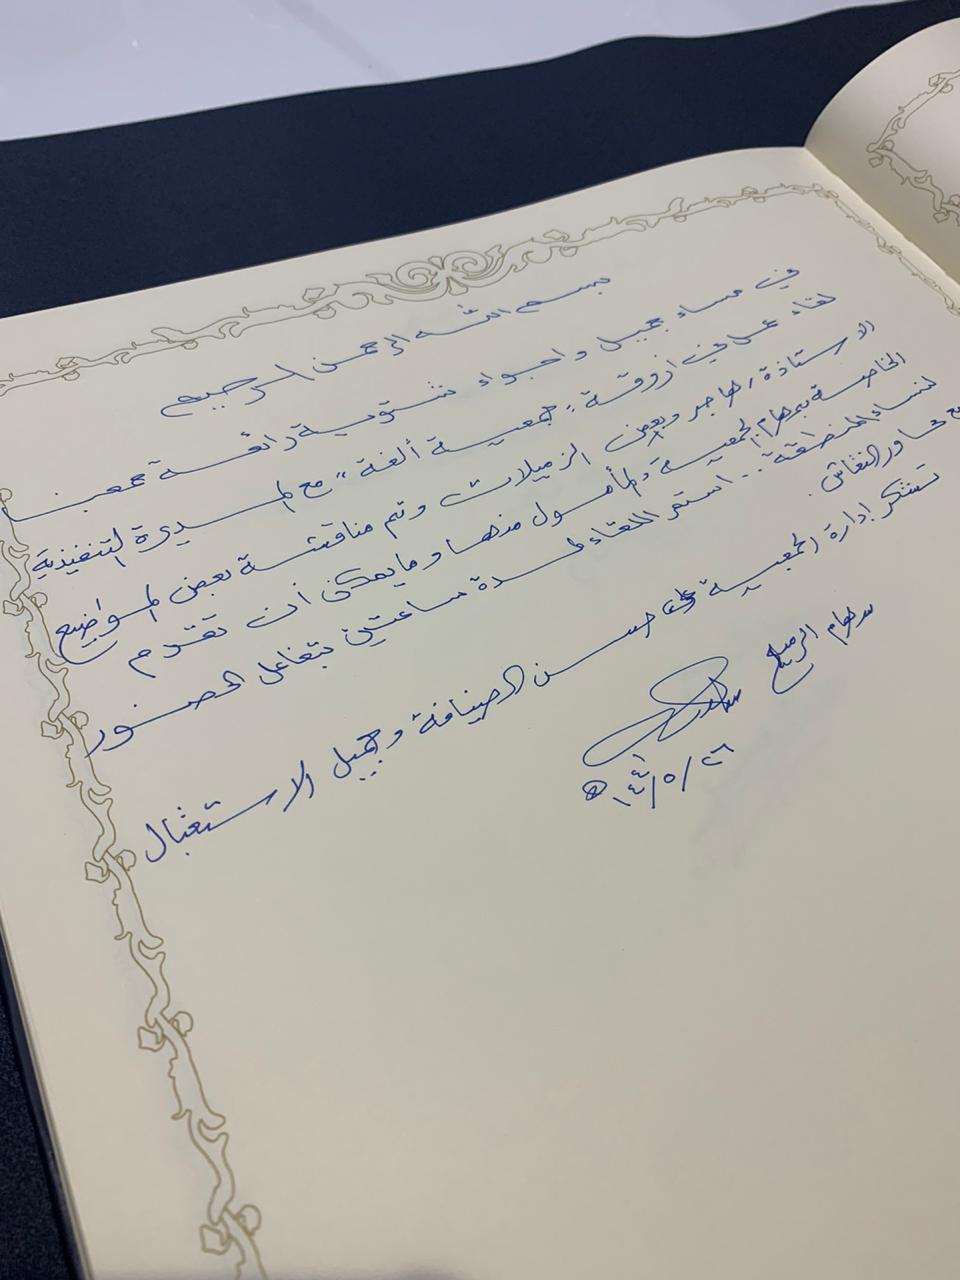 بسم الله الرحمن الرحيم
في مساء جميل واجواء شتوية رائعة جمعنا
لقاء عمل في اروقة "جمعية ألفة" مع المديرة التنفيذية
الاستاذة/ هاجر وبعض الزميلات وتم مناقشة بعض المواضيع
الخاصة بمهام الجمعية والمأمول منها وما يمكن أن تقدم
لنساء المنطقة .. استمر اللقاء لمدة ساعتين بتفاعل الحضور
مع محاور النقاش.
تشكر إدارة الجمعية على حسن الضيافة وجميل الاستقبال
سهام الرميح
٢٦/٥/١٤٤١ هـ